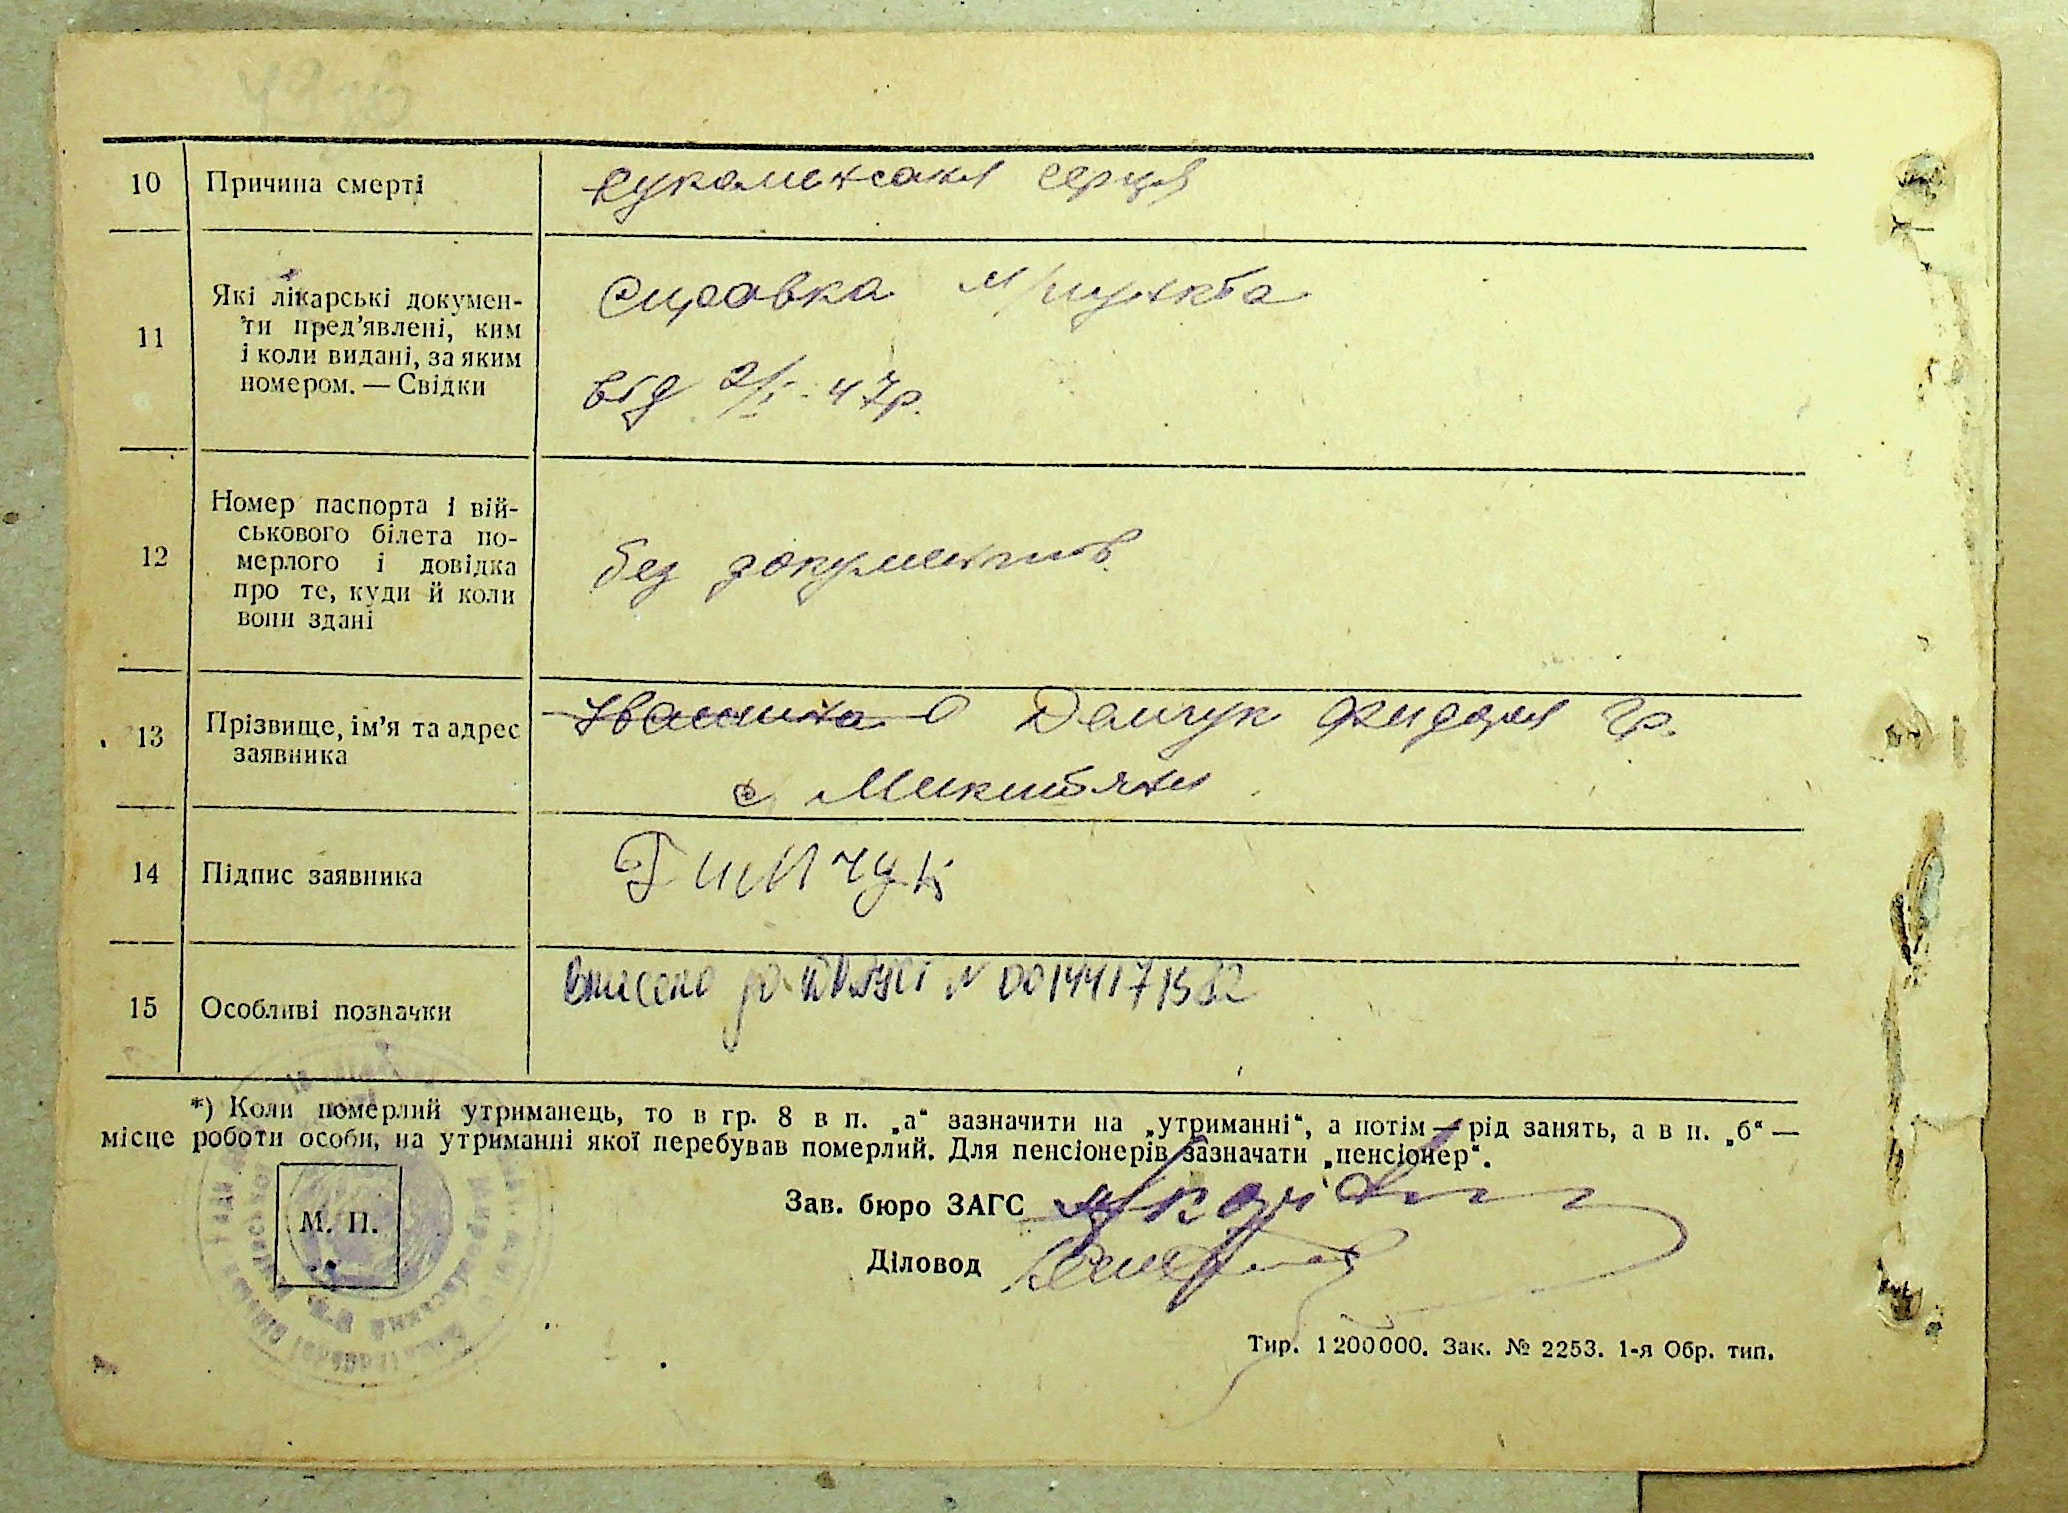 10 Причина смерті
серця
11 Які лікарські докумен-
ти пред'явлені, ким
і коли видані, за яким
номером. — Свідки
Справка м/пункта
від 2/I-47р.
12 Номер паспорта і вій-
ськового білета по-
мерлого і довідка
про те, куди й коли
вони здані
без документів
13 Прізвище, ім'я та адрес
заявника
Демчук Гр.
с.
14 Підпис заявника
15 Особливі позначки
Внесено до N 00144171582
*) Коли померлий утриманець, то в гр. 8 в п. „а“ зазначити на „утриманні“, а потім — рід занять, а в п. „б“ —
місце роботи особи, на утриманні якої перебував померлий. Для пенсіонерів зазначати „пенсіонер“.
М. П.
Зав. бюро ЗАГС
Діловод
Тир. 1200000. Зак. № 2253. 1-я Обр. тип.